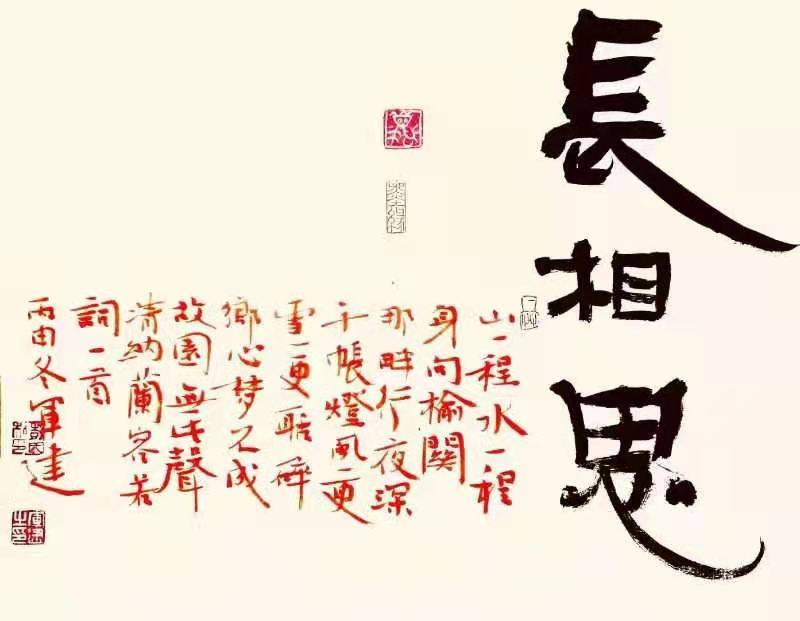 長相思
山一程水一程
身向榆關
那畔行夜深
千帳燈風一更
雪一更聒碎
鄉心夢不成
故園無此聲
清納蘭容若
詞一首
丙申冬軍建